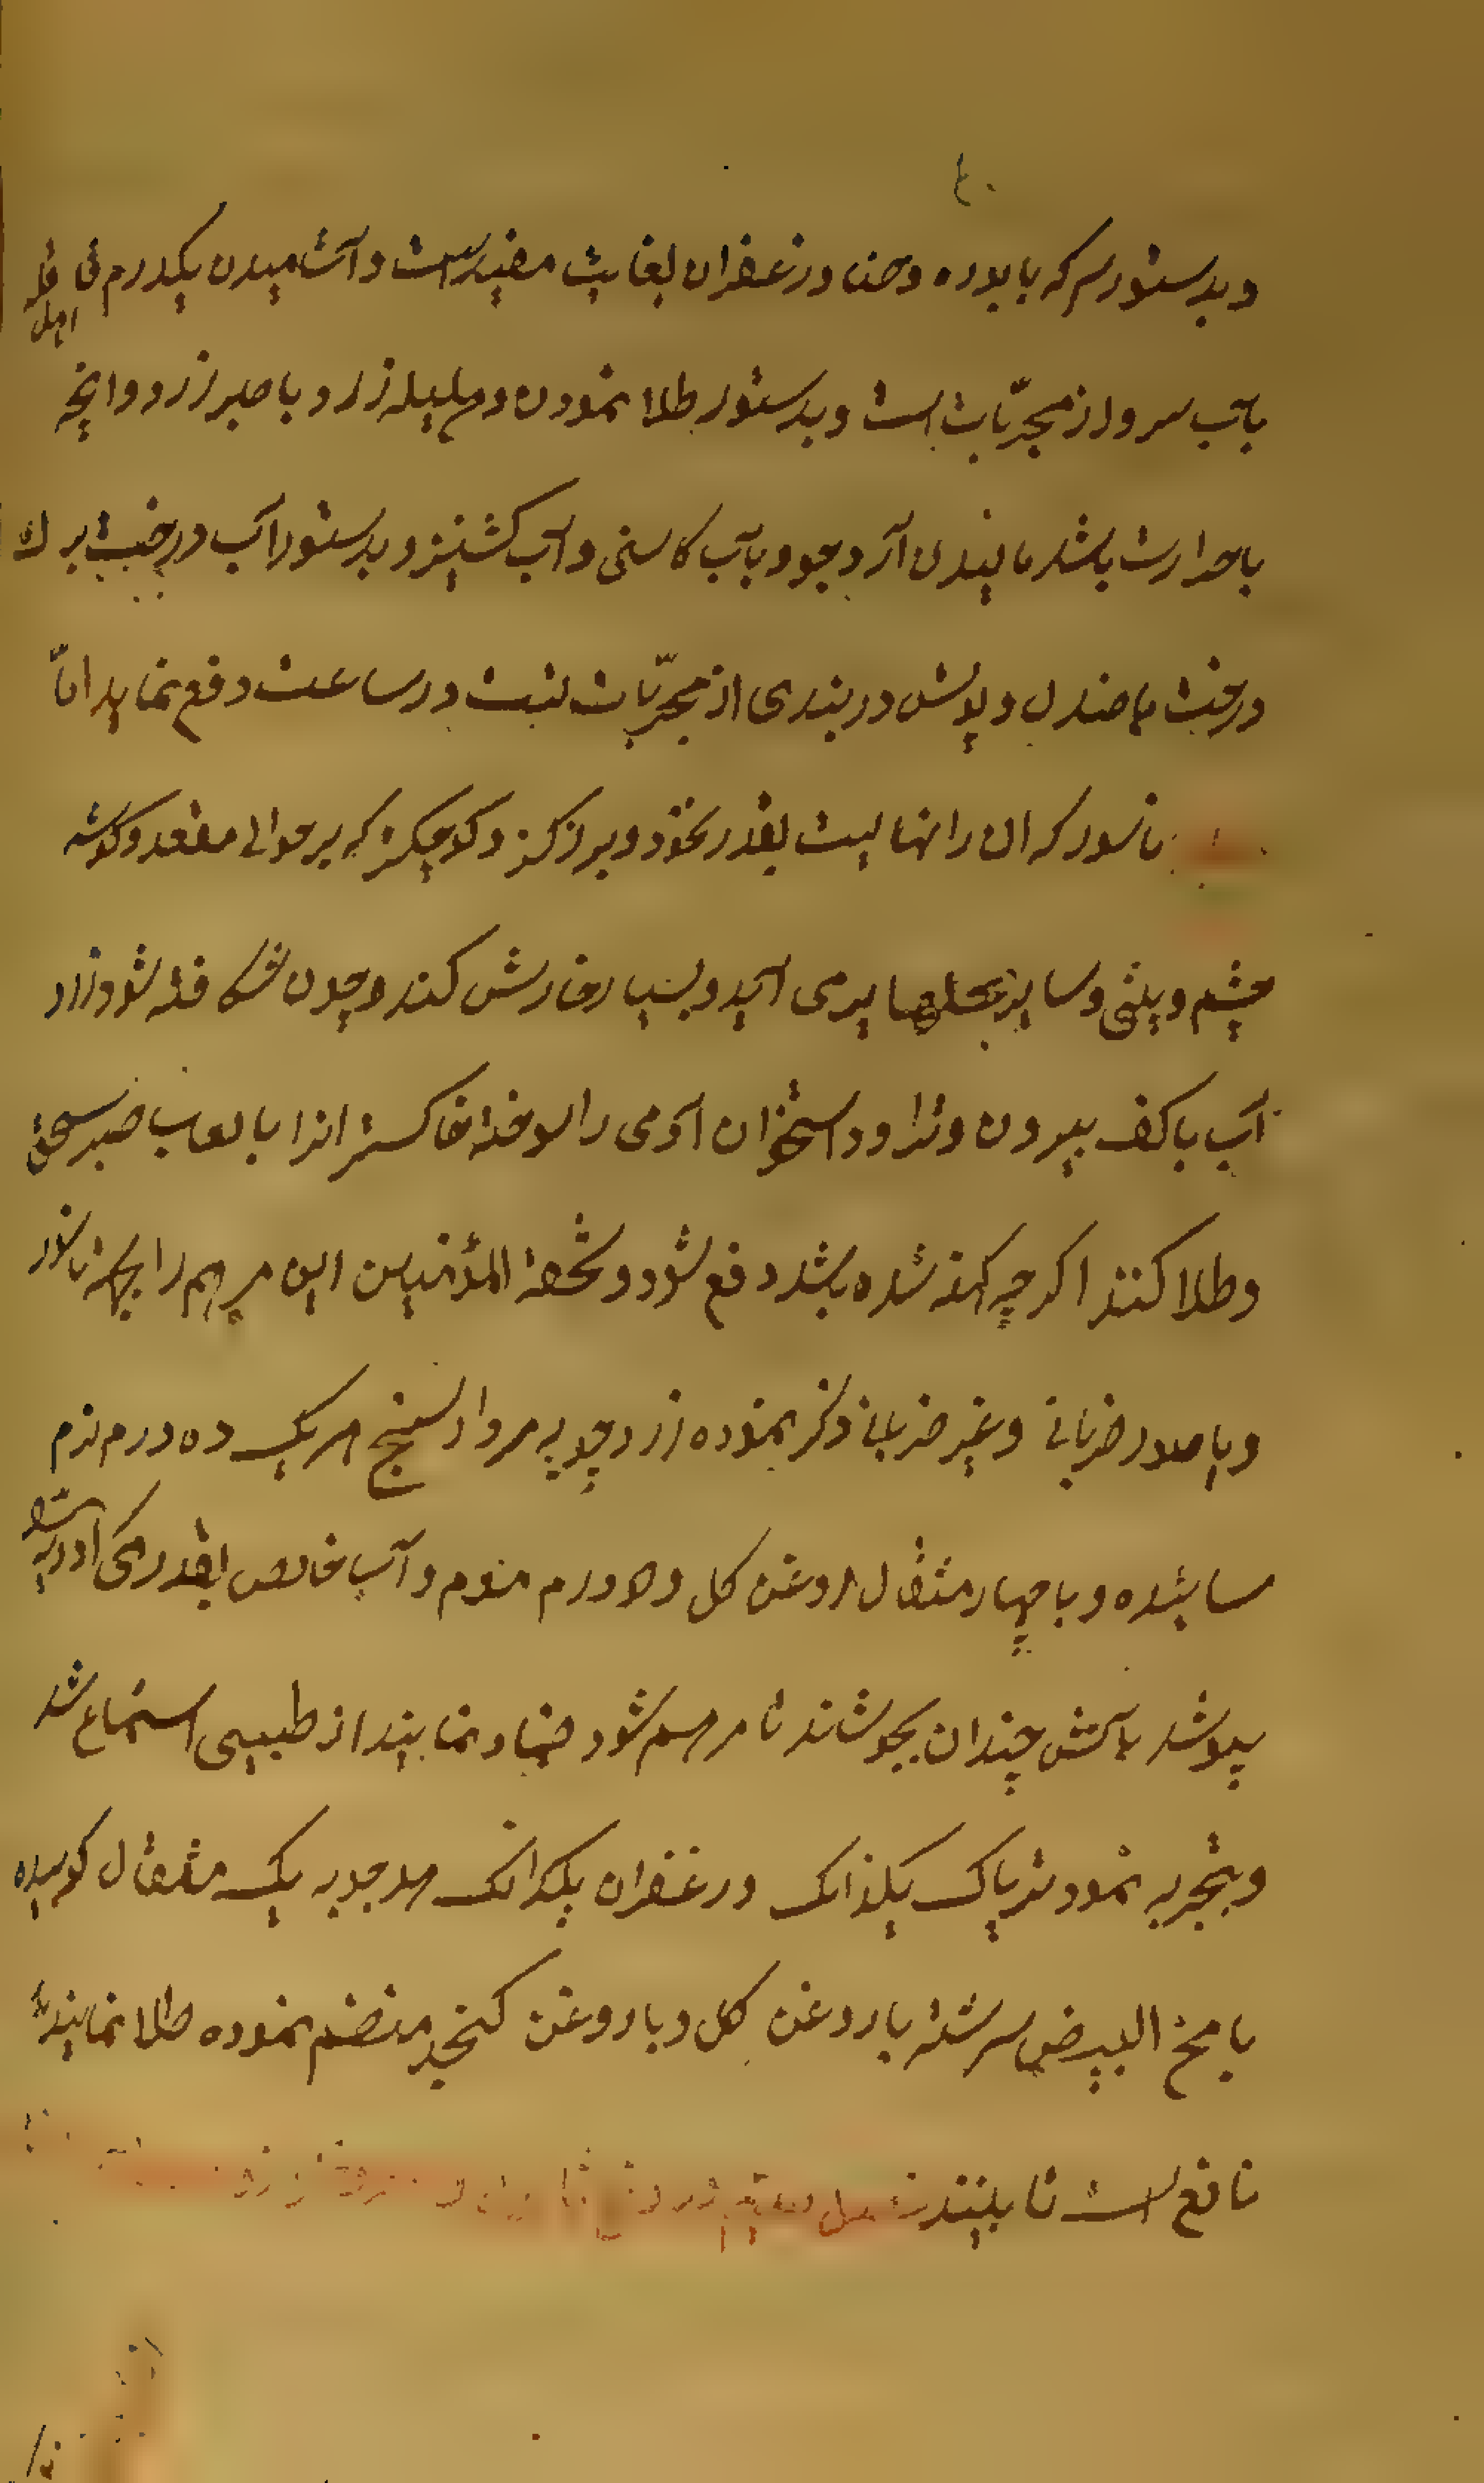 وبدستور سرکه با بوره وحنا وزعفران بغایت مفید است وآشامیدن یکدرم
بآب سرو از مجرّبات است وبدستور طلا نمودن هلیله زرد و با صبر زرد وانچه
باحرارت باشد مالیدن آرد جو و بآب کاسنی وآب کشنیز وبدستور آب درخت برک
درخت با صندل وپوش دربندی از مجرّبات است درساعت دفع نماید امّا
ناسور که ان را نهایت بقدر نخود وبزرکتر وکوچکتر که بر حوالی مقعد وکوشه
چشم وبینی وسایر محلها برمی آید وبسیار خارش کند وچون شکافته شود زرد
آب با کف بیرون وتراود استخوان آدمی را سوخته خاکستر انرا با لعاب صبر سحق
وطلا کنند اکرچه کهنه شده باشد دفع شود وتحفة المؤمنین این مرهم را بجهة ناسور
وبا صور ضربانی وغیر ضربانی ذکر نموده زردچوبه مردار سنج هریک ده درم نرم
سائیده وبا چهار مثقال روغن کل وده درم موم وآب خالص بقدر یکی ادویه
بپوشد بآتش چندان بجوشاند تا مرهم شود ضماد نمایند از طبیبی استماع شد
وبتجربه نمود تریاک یکدانک وزعفران یکدانک هردو چوبه یک مثقال کوبیده
با مخ البیض سرشته با روغن کل وبا روغن کنجد منضم نموده طلا نمایند
نافع است تا بینند